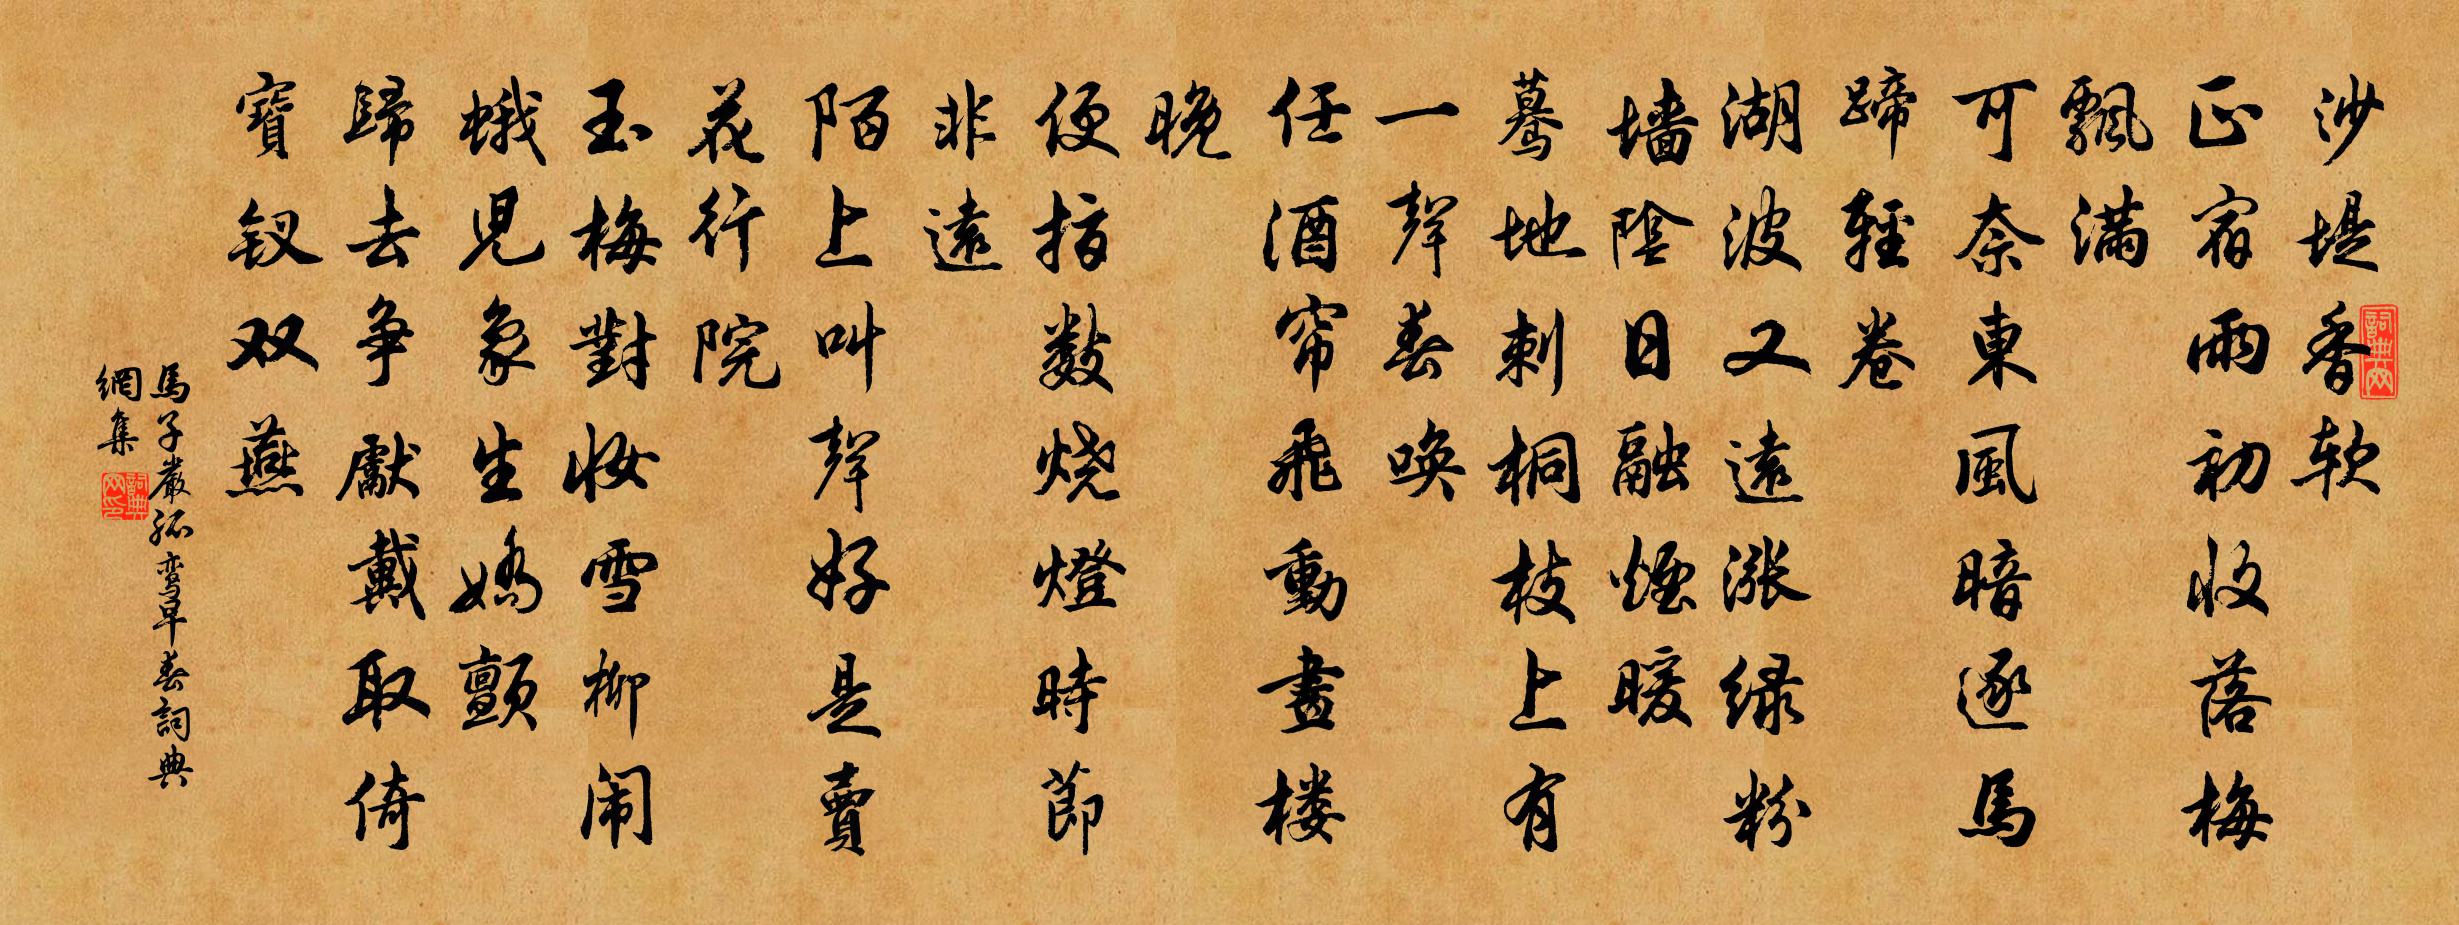 沙堤香软
正宿雨初收落梅
飄满
可奈東風暗逐馬
蹄輕卷
湖波又遠涨绿粉
墙陰日融煙暖
驀地刺桐枝上有
一聲春唤
任酒帘飛動畫楼
晚
便指数烧燈時節
非遠
陌上叫聲好是賣
花行院
玉梅對妆雪柳闹
蛾兒象生嬌顫
歸去争獻戴取倚
寶钗双燕
馬子嚴孤鸾早春詞典
網集
詞典网
詞典网印